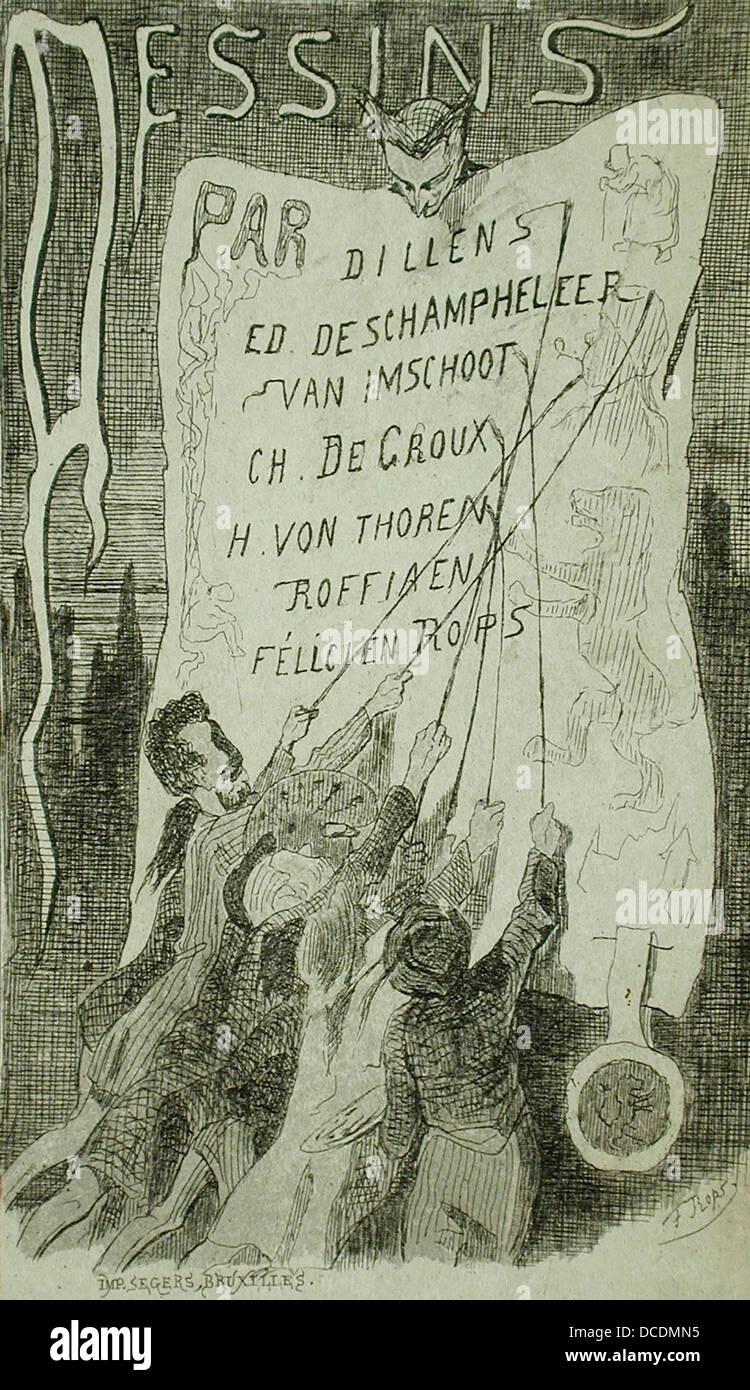 DESSINS
PAR
DILLENS
ED. DESCHAMPHELEER
VAN IMSCHOOT
CH. DE GROUX
H. VON THOREN
ROFFIAEN
FÉLICIEN ROPS
F Rops.
IMP. SEGERS, BRUXELLES.
alamy
a
alamy
Image ID: DCDMN5
www.alamy.com